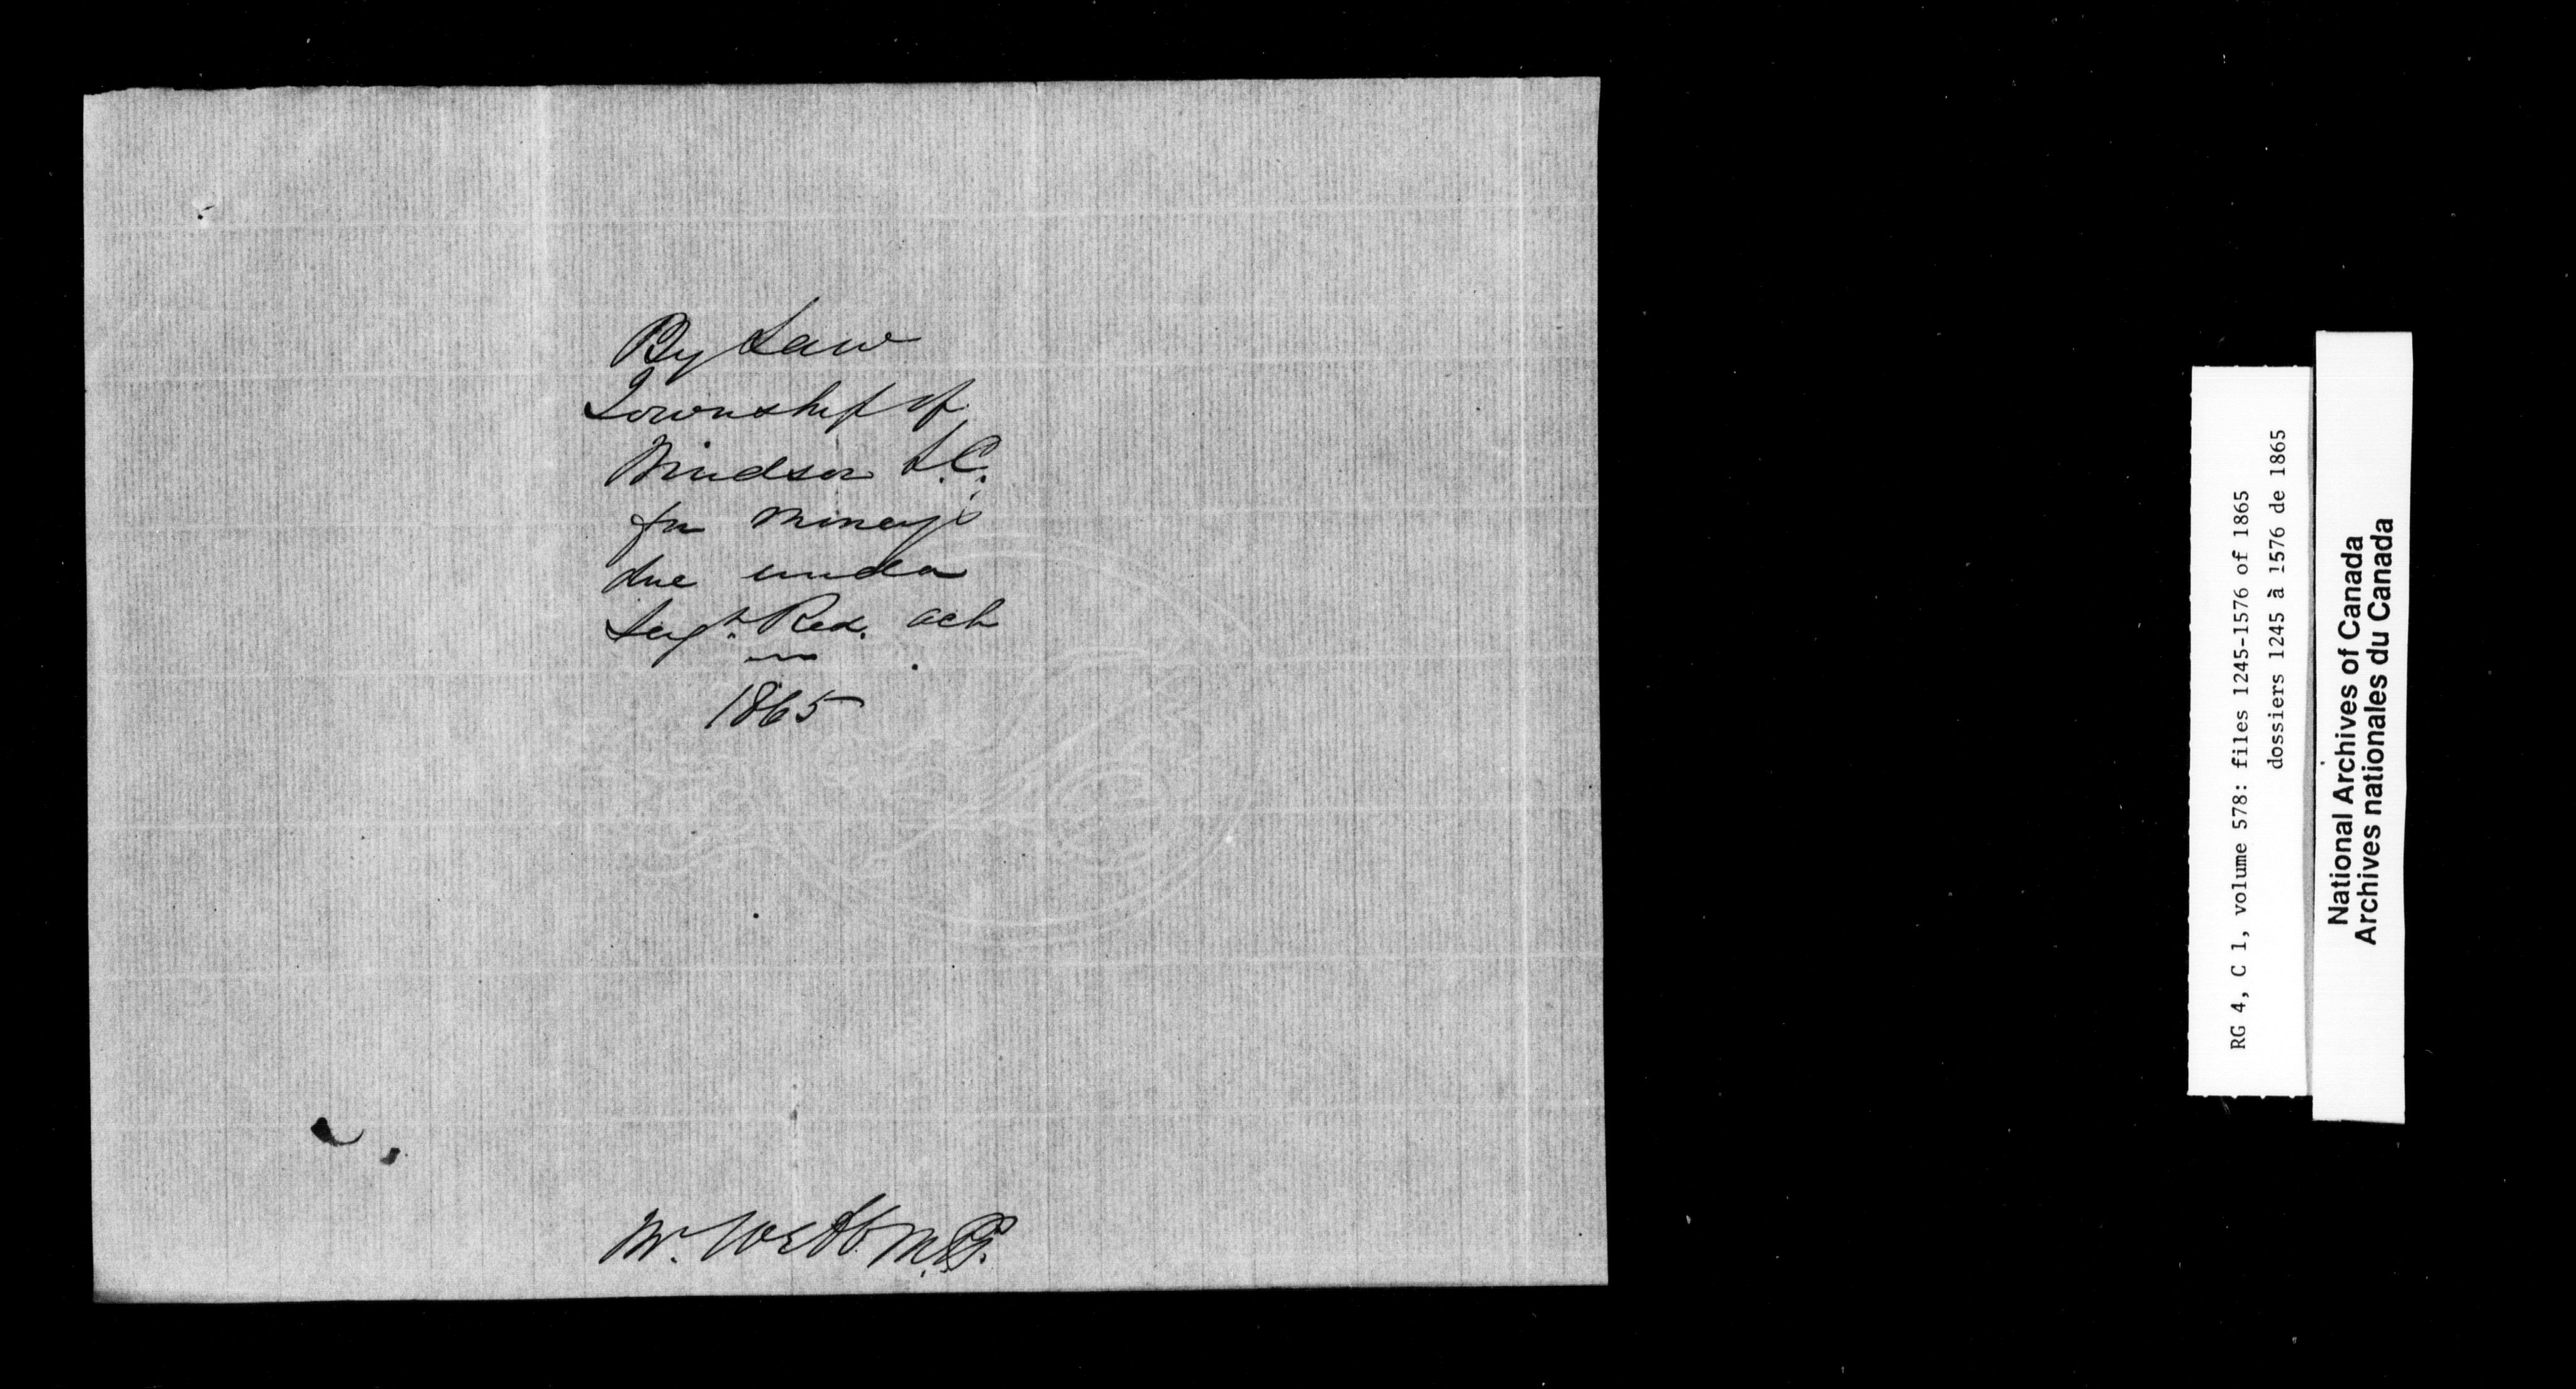 By Law
Township of
Windsor L.C.
for moneys
due under
Seigl. Red. act
1865
Mr. Webb M.P.
RG 4, C 1, volume 578: files 1245-1576 of 1865
dossiers 1245 à 1576 de 1865
National Archives of Canada
Archives nationales du Canada